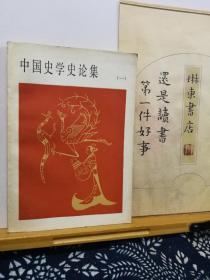 中国史学史论集
(一)
琳东书店
還是讀書
第一件好事